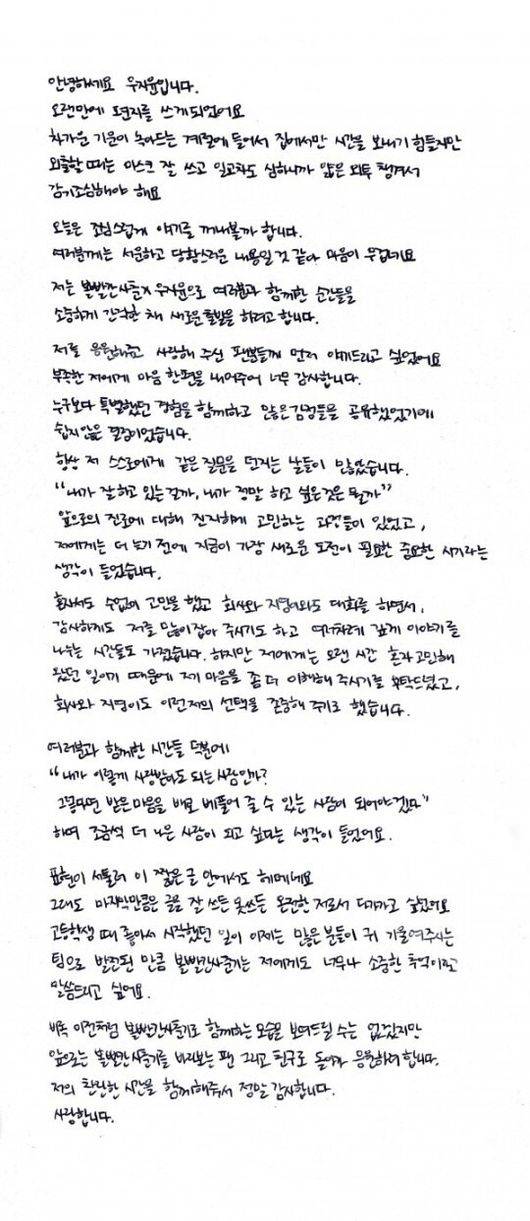 안녕하세요 우지윤입니다.
오랜만에 편지를 쓰게되었어요
차가운 기운이 녹아드는 계절에 들어서 집에서만 시간을 보내기 힘들지만
외출할 때는 마스크 잘 쓰고 일교차도 심하니까 얇은 외투 챙겨서
감기조심해야 해요
오늘은 조심스럽게 얘기를 꺼내볼까 합니다.
여러분께는 서운하고 당황스러운 내용일 것 같아 마음이 무겁네요
저는 볼빨간사춘기 우지윤으로 여러분과 함께한 순간들을
소중하게 간직한 채 새로운 출발을 하려고 합니다.
저를 응원해주고 사랑해 주신 팬분들께 먼저 얘기드리고 싶었어요
부족한 저에게 마음 한편을 내어주어 너무 감사합니다.
누구보다 특별했던 경험을 함께하고 많은 감정들을 공유했었기에
쉽지 않은 결정이었습니다.
항상 저 스스로에게 같은 질문을 던지는 날들이 많았습니다.
"내가 잘 하고 있는걸까, 내가 정말 하고 싶은 것은 뭘까"
앞으로의 진로에 대해 진지하게 고민하는 과정들이 있었고,
저에게는 더 늦기 전에 지금이 가장 새로운 도전이 필요한 중요한 시기라는
생각이 들었습니다.
혼자서도 수없이 고민을 했고 회사와 지영이와도 대화를 하면서,
감사하게도 저를 많이 잡아 주시기도 하고 여러차례 깊게 이야기를
나누는 시간들도 가졌습니다. 하지만 저에게는 오랜 시간 혼자 고민해
왔던 일이기 때문에 제 마음을 좀 더 이해해 주시기를 부탁드렸고,
회사와 지영이도 이런 저의 선택을 존중해 주기로 했습니다.
여러분과 함께한 시간들 덕분에
"내가 이렇게 사랑받아도 되는 사람인가?
그렇다면 받은 마음을 배로 베풀어 줄 수 있는 사람이 되어야겠다"
하며 조금씩 더 나은 사람이 되고 싶다는 생각이 들었어요.
표현이 서툴러 이 짧은 글 안에서도 헤매네요
그래도 마지막만큼은 글을 잘 쓰든 못쓰든 온전한 저로서 다가가고 싶었어요
고등학생 때 좋아서 시작했던 일이 이제는 많은 분들이 귀 기울여주시는
팀으로 발전된 만큼 볼빨간사춘기는 저에게도 너무나 소중한 추억이라고
말씀드리고 싶어요.
비록 이전처럼 볼빨간사춘기로 함께하는 모습을 보여드릴 수는 없겠지만
앞으로는 볼빨간사춘기를 바라보는 팬 그리고 친구로 돌아가 응원하려 합니다.
저의 찬란한 시간을 함께해줘서 정말 감사합니다.
사랑합니다.